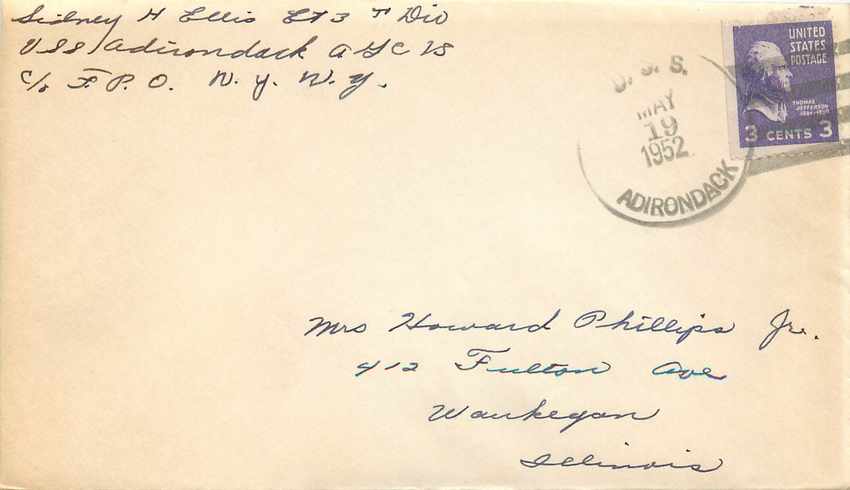 Sidney H Ellis ET3 T Div
USS Adirondack AGC 15
c/o F.P.O. N.Y. N.Y.
U.S.S.
MAY
19
1952
ADIRONDACK
UNITED
STATES
POSTAGE
THOMAS
JEFFERSON
3 CENTS 3
Mrs Howard Phillips Jr.
412 Fulton Ave
Waukegan
Illinois